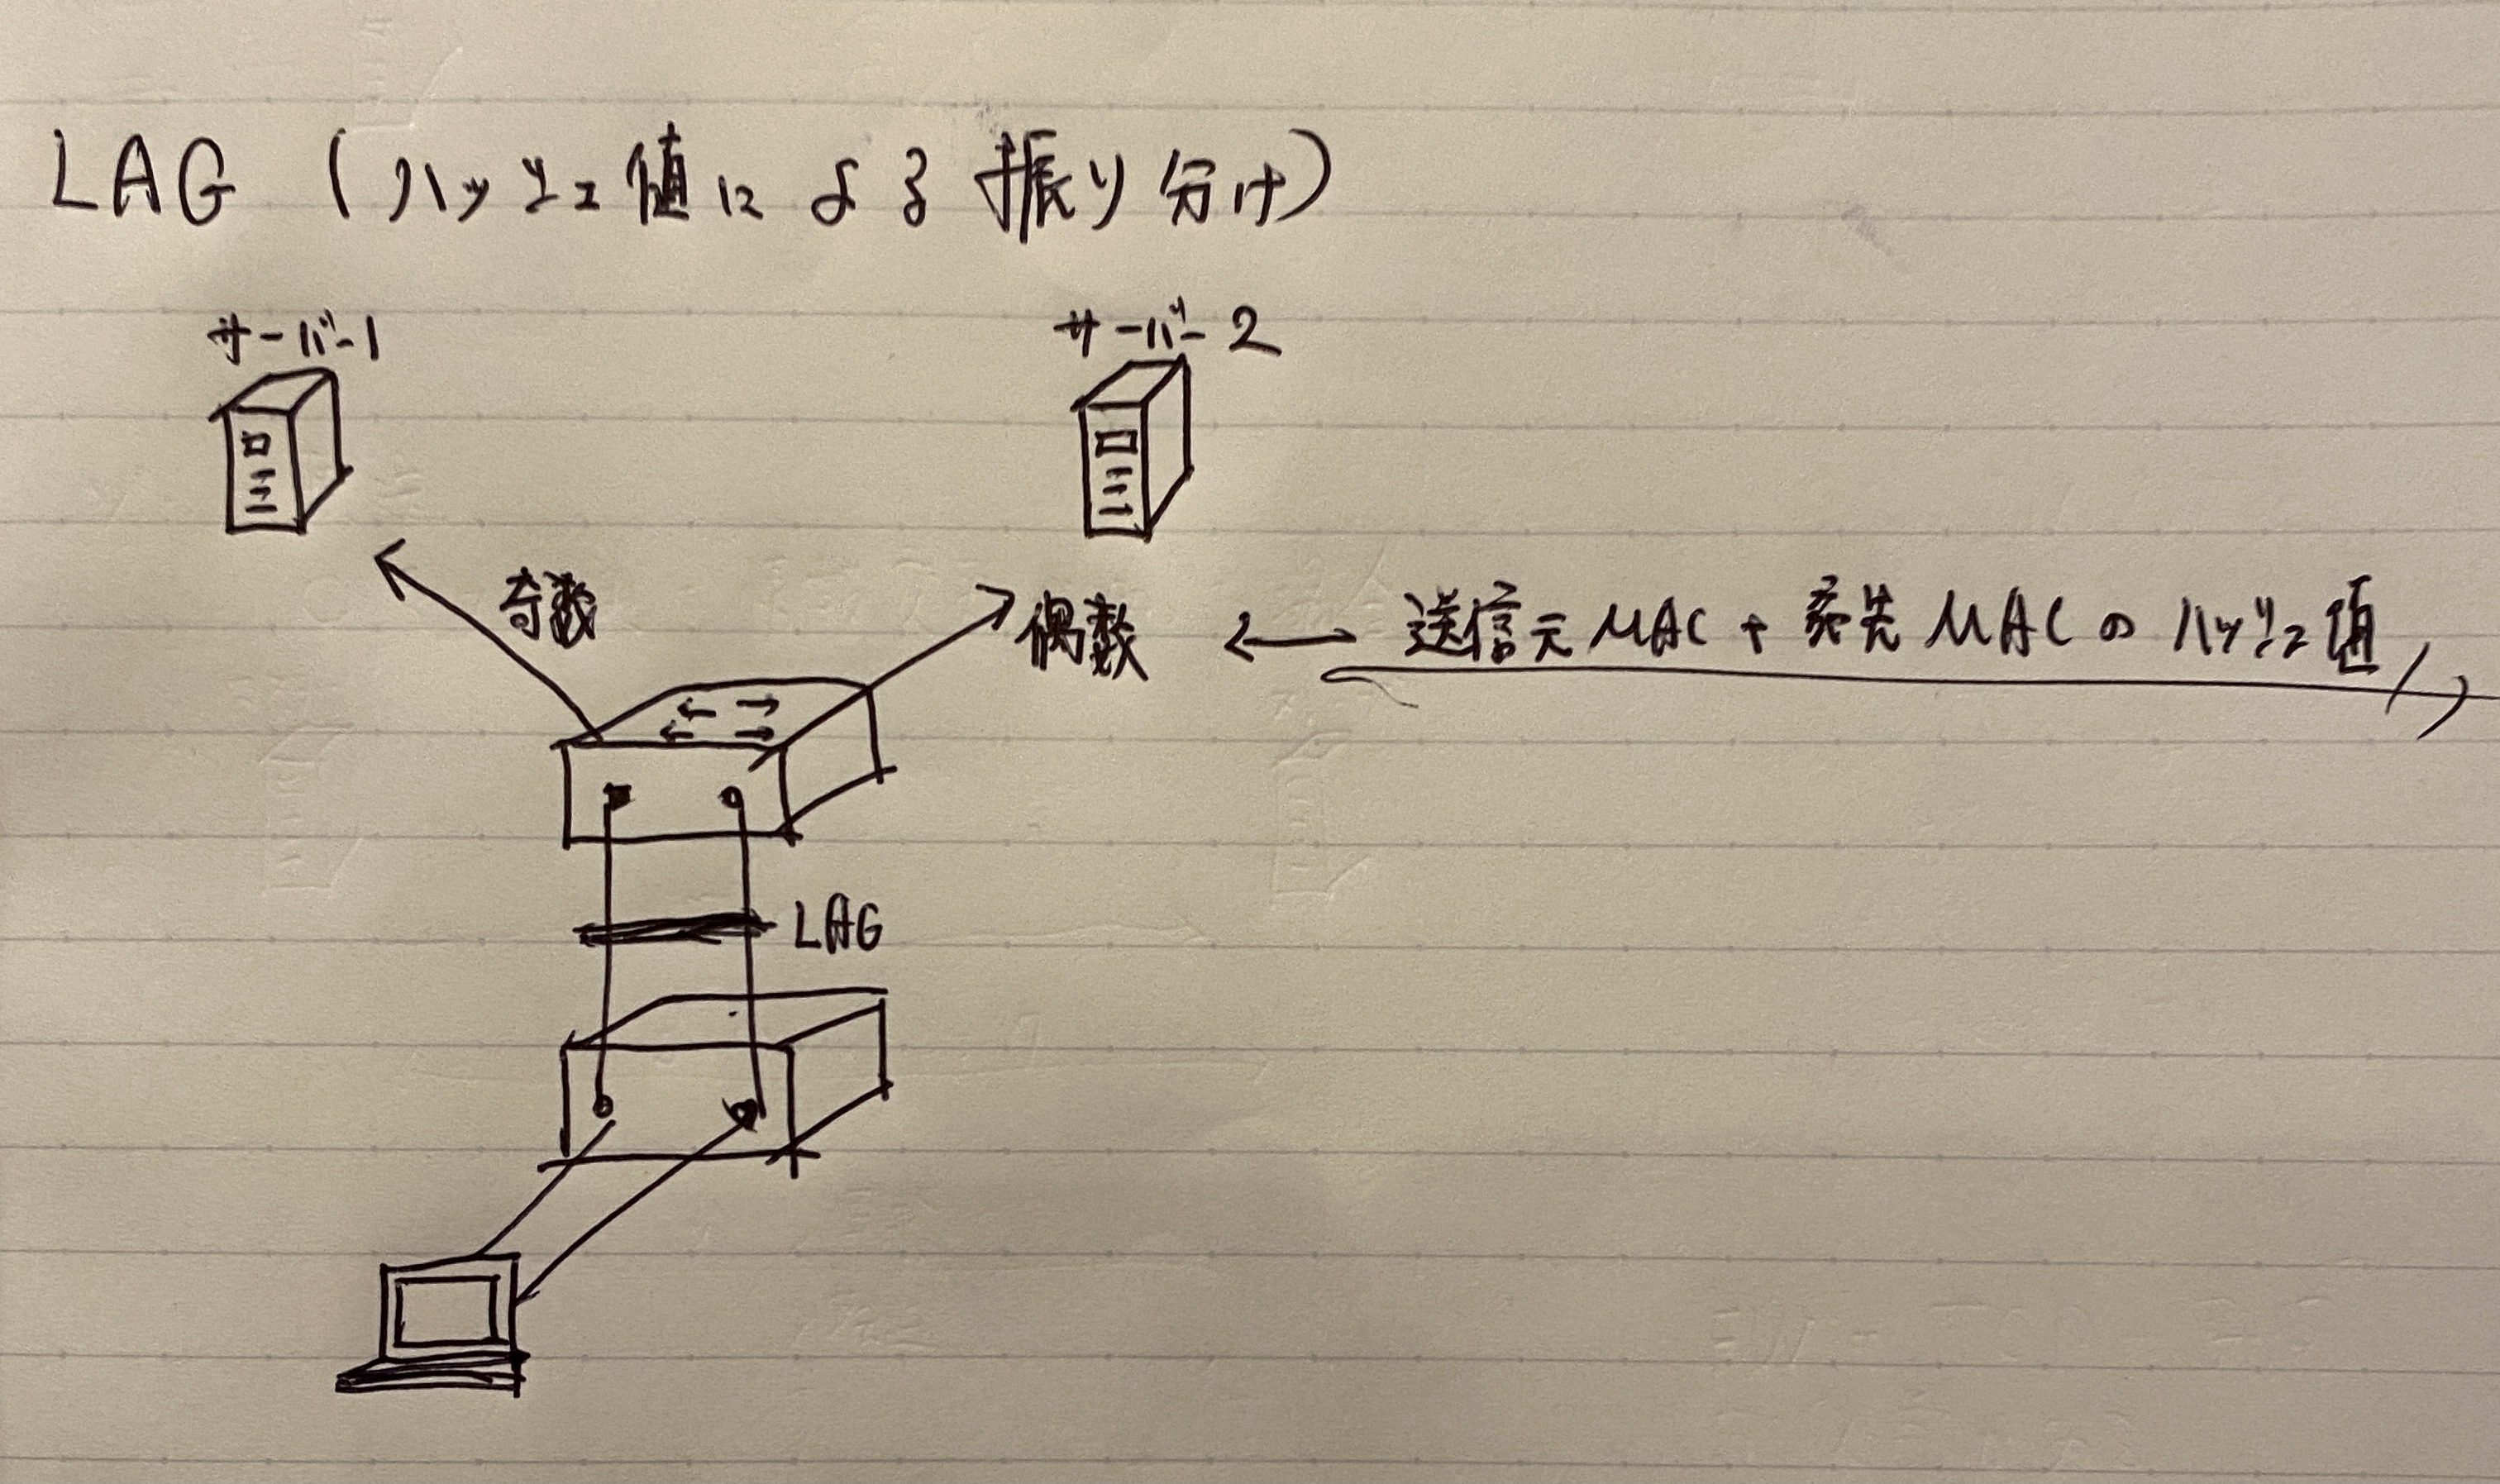 LAG (ハッシュ値による振り分け)
サーバー1
サーバー2
奇数
偶数 ←→ 送信元MAC+宛先MACのハッシュ値
LAG